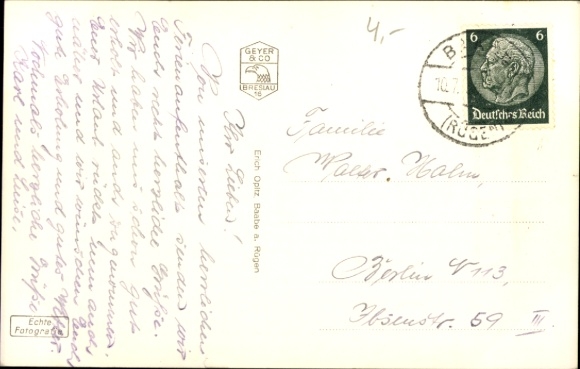 Ihr Lieben!
Von unserem herrlichen
Ferienaufenthalt senden wir
Euch recht herzliche Grüße.
Wir haben uns schon gut
erholt und auch
Euer Urlaub rückt nun auch
näher und wir wünschen Euch
gute Erholung und gutes Wetter.
Nochmals herzliche Grüße
Karl und Luise.
Echte
Fotografie
GEYER
& CO
BRESLAU
16
Erich Opitz, Baabe a. Rügen
4,-
6 6
Deutsches Reich
10.7.
(RÜGEN)
Familie
Walter Halm,
Berlin N 113,
Ibsenstr. 59 III